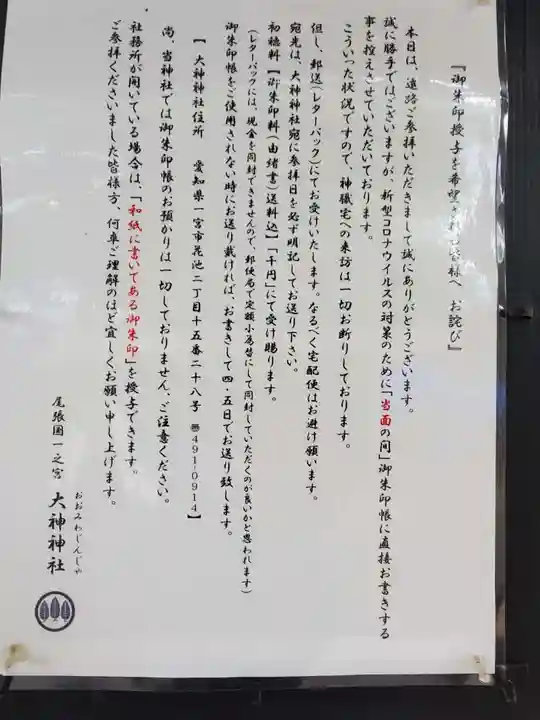 『御朱印授与を希望される皆様へ　お詫び』
本日は、遠路ご参拝いただきまして誠にありがとうございます。
誠に勝手ではございますが、新型コロナウイルスの対策のために「当面の間」御朱印帳に直接お書きする
事を控えさせていただいております。
こういった状況ですので、神職宅への来訪は一切お断りしております。
但し、郵送(レターパック)にてお受けいたします。なるべく宅配便はお避け願います。
宛先は、大神神社宛に参拝日を必ず明記してお送り下さい。
初穂料【御朱印料(由緒書)送料込】「千円」にて受け賜ります。
(レターパックには、現金を同封できませんので、郵便局で定額小為替にして同封していただくのが良いかと思われます)
御朱印帳をご使用されない時にお送り戴ければ、お書きして四・五日でお送り致します。
【　大神神社住所　愛知県一宮市花池二丁目十五番二十八号　〠491-0914】
尚、当神社では御朱印帳のお預かりは一切しておりません、ご注意ください。
社務所が開いている場合は、「和紙に書いてある御朱印」を授与できます。
ご参拝くださいました皆様方、何卒ご理解のほど宜しくお願い申し上げます。
尾張国一之宮　大神神社
おおみわじんじゃ